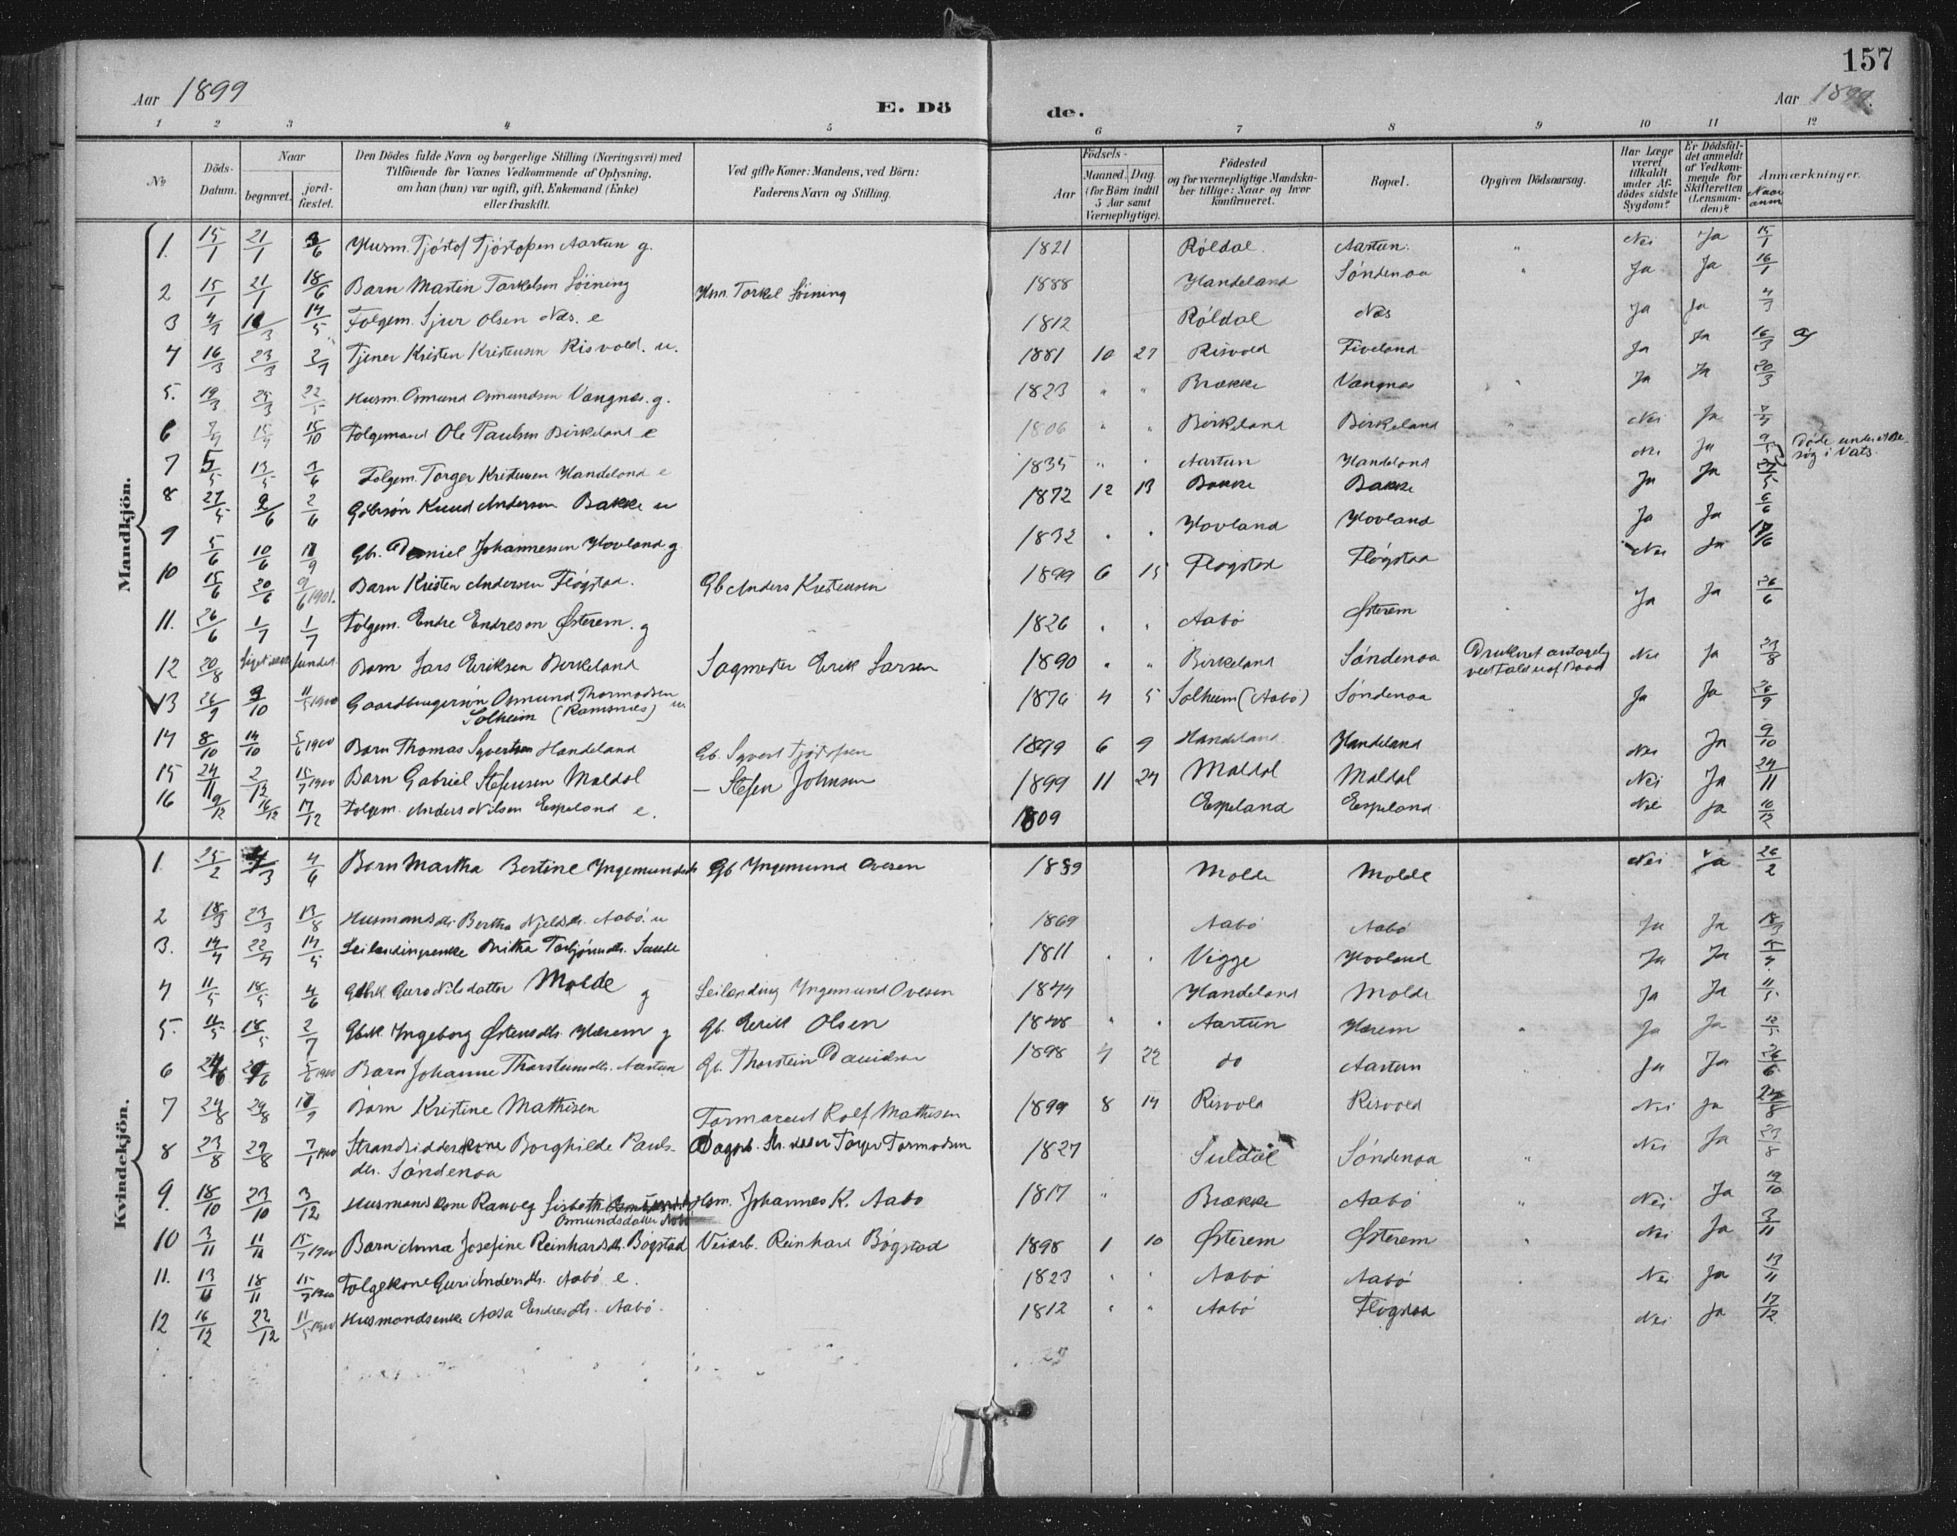 157
Aar 1899
E. Dö
de.
Aar 1899.
1 2 3 4 5 6 7 8 9 10 11 12
No.
Döds-Datum.
Naar
begravet.
jord-fæstet.
Den Dödes fulde Navn og borgerlige Stilling (Næringsvei) med
Tilföiende for Voxnes Vedkommende af Oplysning,
om han (hun) var ugift, gift, Enkemand (Enke)
eller fraskilt.
Ved gifte Koner: Mandens, ved Börn:
Faderens Navn og Stilling.
Födsels-
Aar
Maaned. Dag
(for Börn indtil
5 Aar samt
Værnepligtige).
Födested
og for værnepligtige Mandskaber tillige: Naar og hvor
konfirmeret.
Bopæl.
Opgiven Dödsaarsag.
Har Læge
været
tilkaldt
under Afdödes sidste
Sygdom?
Er Dödsfaldet anmeldt
af Vedkommende for
Skifteretten
(Lensmanden)?
Anmærkninger.
Naar anm
Mandkjön.
1. 15/1 21/1 3/6 Husm. Tjöstof Tjöstofsen Aartun g. 1821 Röldal. Aartun. " Nei Ja 15/1
2 15/1 21/1 18/6 Barn Martin Torkelsen Löining Hsm. Torkel Löining 1888 Handeland Söndenaa " Ja Ja 16/1
3 4/3 10/3 14/5 Folgem. Sjur Olsen Næs. e 1812 Röldal Næs Ja Ja 4/3
4 16/3 23/3 2/7 Tjener Kristen Kristensen Risvold. u. 1881 10 27 Risvold Fiveland Ja Ja 16/3
5. 19/3 25/3 22/5 Husm. Osmund Osmundsen Vangnæs. g. 1823 " " Brække Vangnæs " Ja Ja 20/3
6 15/10 Folgemand Ole Paulsen Birkeland e 1806 " " Birkeland Birkeland Nei Ja
7 5/5 13/5 3/6 Folgem. Torger Kristensen Handeland e 1835 " " Aartun Handeland Nei Ja 9/5 Döde under et Besög i Vats.
8 27/5 2/6 2/6 Gbrsön Knud Andersen Bakke u 1872 12 13 Bakke Bakke Ja Ja
9 5/6 10/6 17/9 Gb. Daniel Johannessen Hovland g 1832 " " Hovland Hovland Ja Ja 6/6
10 15/6 20/6 9/6 1901. Barn Kristen Andersen Flögstad. Gb Anders Kristensen 1899 6 15 Flögstad Flögstaa Nei Ja 17/6
11. 26/6 1/7 1/7 Folgem. Endre Endresen Østerem. g 1826 " " Aabö Østerem Ja Ja 26/6
12 20/8 Liget ikke fundet. Barn Lars Eriksen Birkeland Sagmester Erik Larsen 1890 " " Birkeland Söndenaa Druknet antagelig ved Fald ud af Baad Nei Ja 23/8
13 26/9 9/10 11/5 1900 Gaardbrugersön Osmund Thormodsen
Solheim (Ramsnes) u 1876 4 5 Solheim (Aabö) Söndenaa Ja Ja 26/9
14 8/10 14/10 5/6 1900 Barn Thomas Syvertsen Handeland Gb. Syvert Tjöstofsen 1899 6 9 Handeland Handeland Nei Ja 9/10
15 24/11 2/12 15/7 1900 Barn Gabriel Stefensen Maldal — Stefen Johnsen 1899 11 24 Maldal Maldal Nei Ja 24/11
16 9/12 16/12 17/12 Folgem. Anders Nilsen Espeland e. 1809 Espeland Espeland Nei Ja 10/12
Kvindekjön.
1. 25/2 4/3 4/6 Barn Martha Bertine Yngemundsdtr Gb Yngemund Ovesen 1889 Molde Molde Nei Ja 26/2
2 18/3 23/3 13/8 Husmandsdtr. Bertha Njelsdtr. Aabö. u 1869 Aabö Aabö Ja Ja 18/3
3. 14/4 22/4 14/5 Leilændingsenke Britha Torbjörnsdtr. Sande 1811 " " Vigge Hovland Ja Ja 15/4.
4 11/5 18/5 4/6 Gbrk Guro Nilsdatter Molde g Leilænding Yngemund Ovesen 1844 Handeland Molde Ja Ja 11/5.
5. 11/5 18/5 2/7 Gbrk Ingeborg Østensdtr. Hærem g Gb. Eerik Olsen 1848 " " Aartun Hærem " Ja Ja 12/5
6 24/6 29/6 5/6 1900 Barn Johanne Thorsteinsdtr. Aartun Gb. Thorstein Davidsen 1898 4 22 do Aartun Ja Ja 26/6
7 24/8 29/8 17/9 Barn Kristine Mathisen Formand Rolf Mathisen 1899 8 14 Risvold Risvold Nei Ja 24/8
8 23/8 29/8 7/1 1900 Strandsidderkone Borghilde Paulsdtr. Söndenaa Dagarb. Str. Torger Tormodsen 1827 Suldal Söndenaa " Nei Ja 23/8
9. 18/10 23/10 3/12 Husmandskone Ranveg Lisbeth
Osmundsdatter Aabö Hsm. Johannes K. Aabö 1817 " Brække Aabö " Nei Ja 19/10
10 3/11 11/11 15/7 1900 Barn Anna Josefine Reinhardsdtr. Bögstad Veiarb. Reinhard Bögstad 1898 1 10 Østerem Østerem " Nei Ja 3/11
11. 13/11 18/11 15/7 1900 Folgekone Guri Andersdtr. Aabö e. 1823 " " Aabö Aabö Nei Ja 13/11
12 16/12 22/12 11/5 1900 Husmandsenke Aasa Endresdtr. Aabö. 1812 " " Aabö Flögstaa Nei Ja 17/12